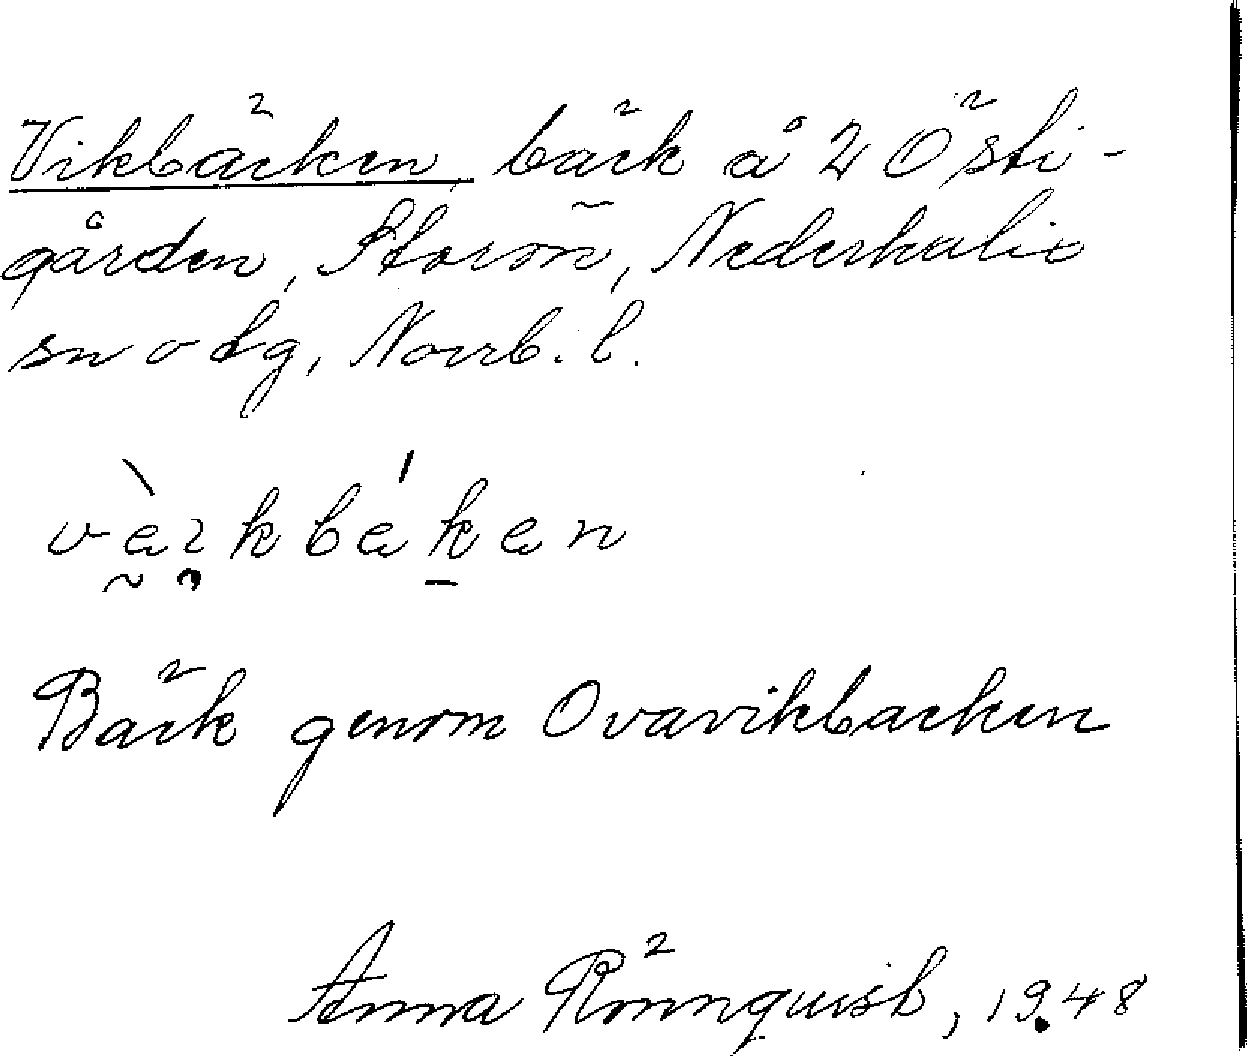 Vikbäcken, bäck å 2 Östi-
gården, Storön, Nederkalix
sn o tg, Norrb. l.
Bäck genom Ovavikbacken
Anna Rönnquist, 1948